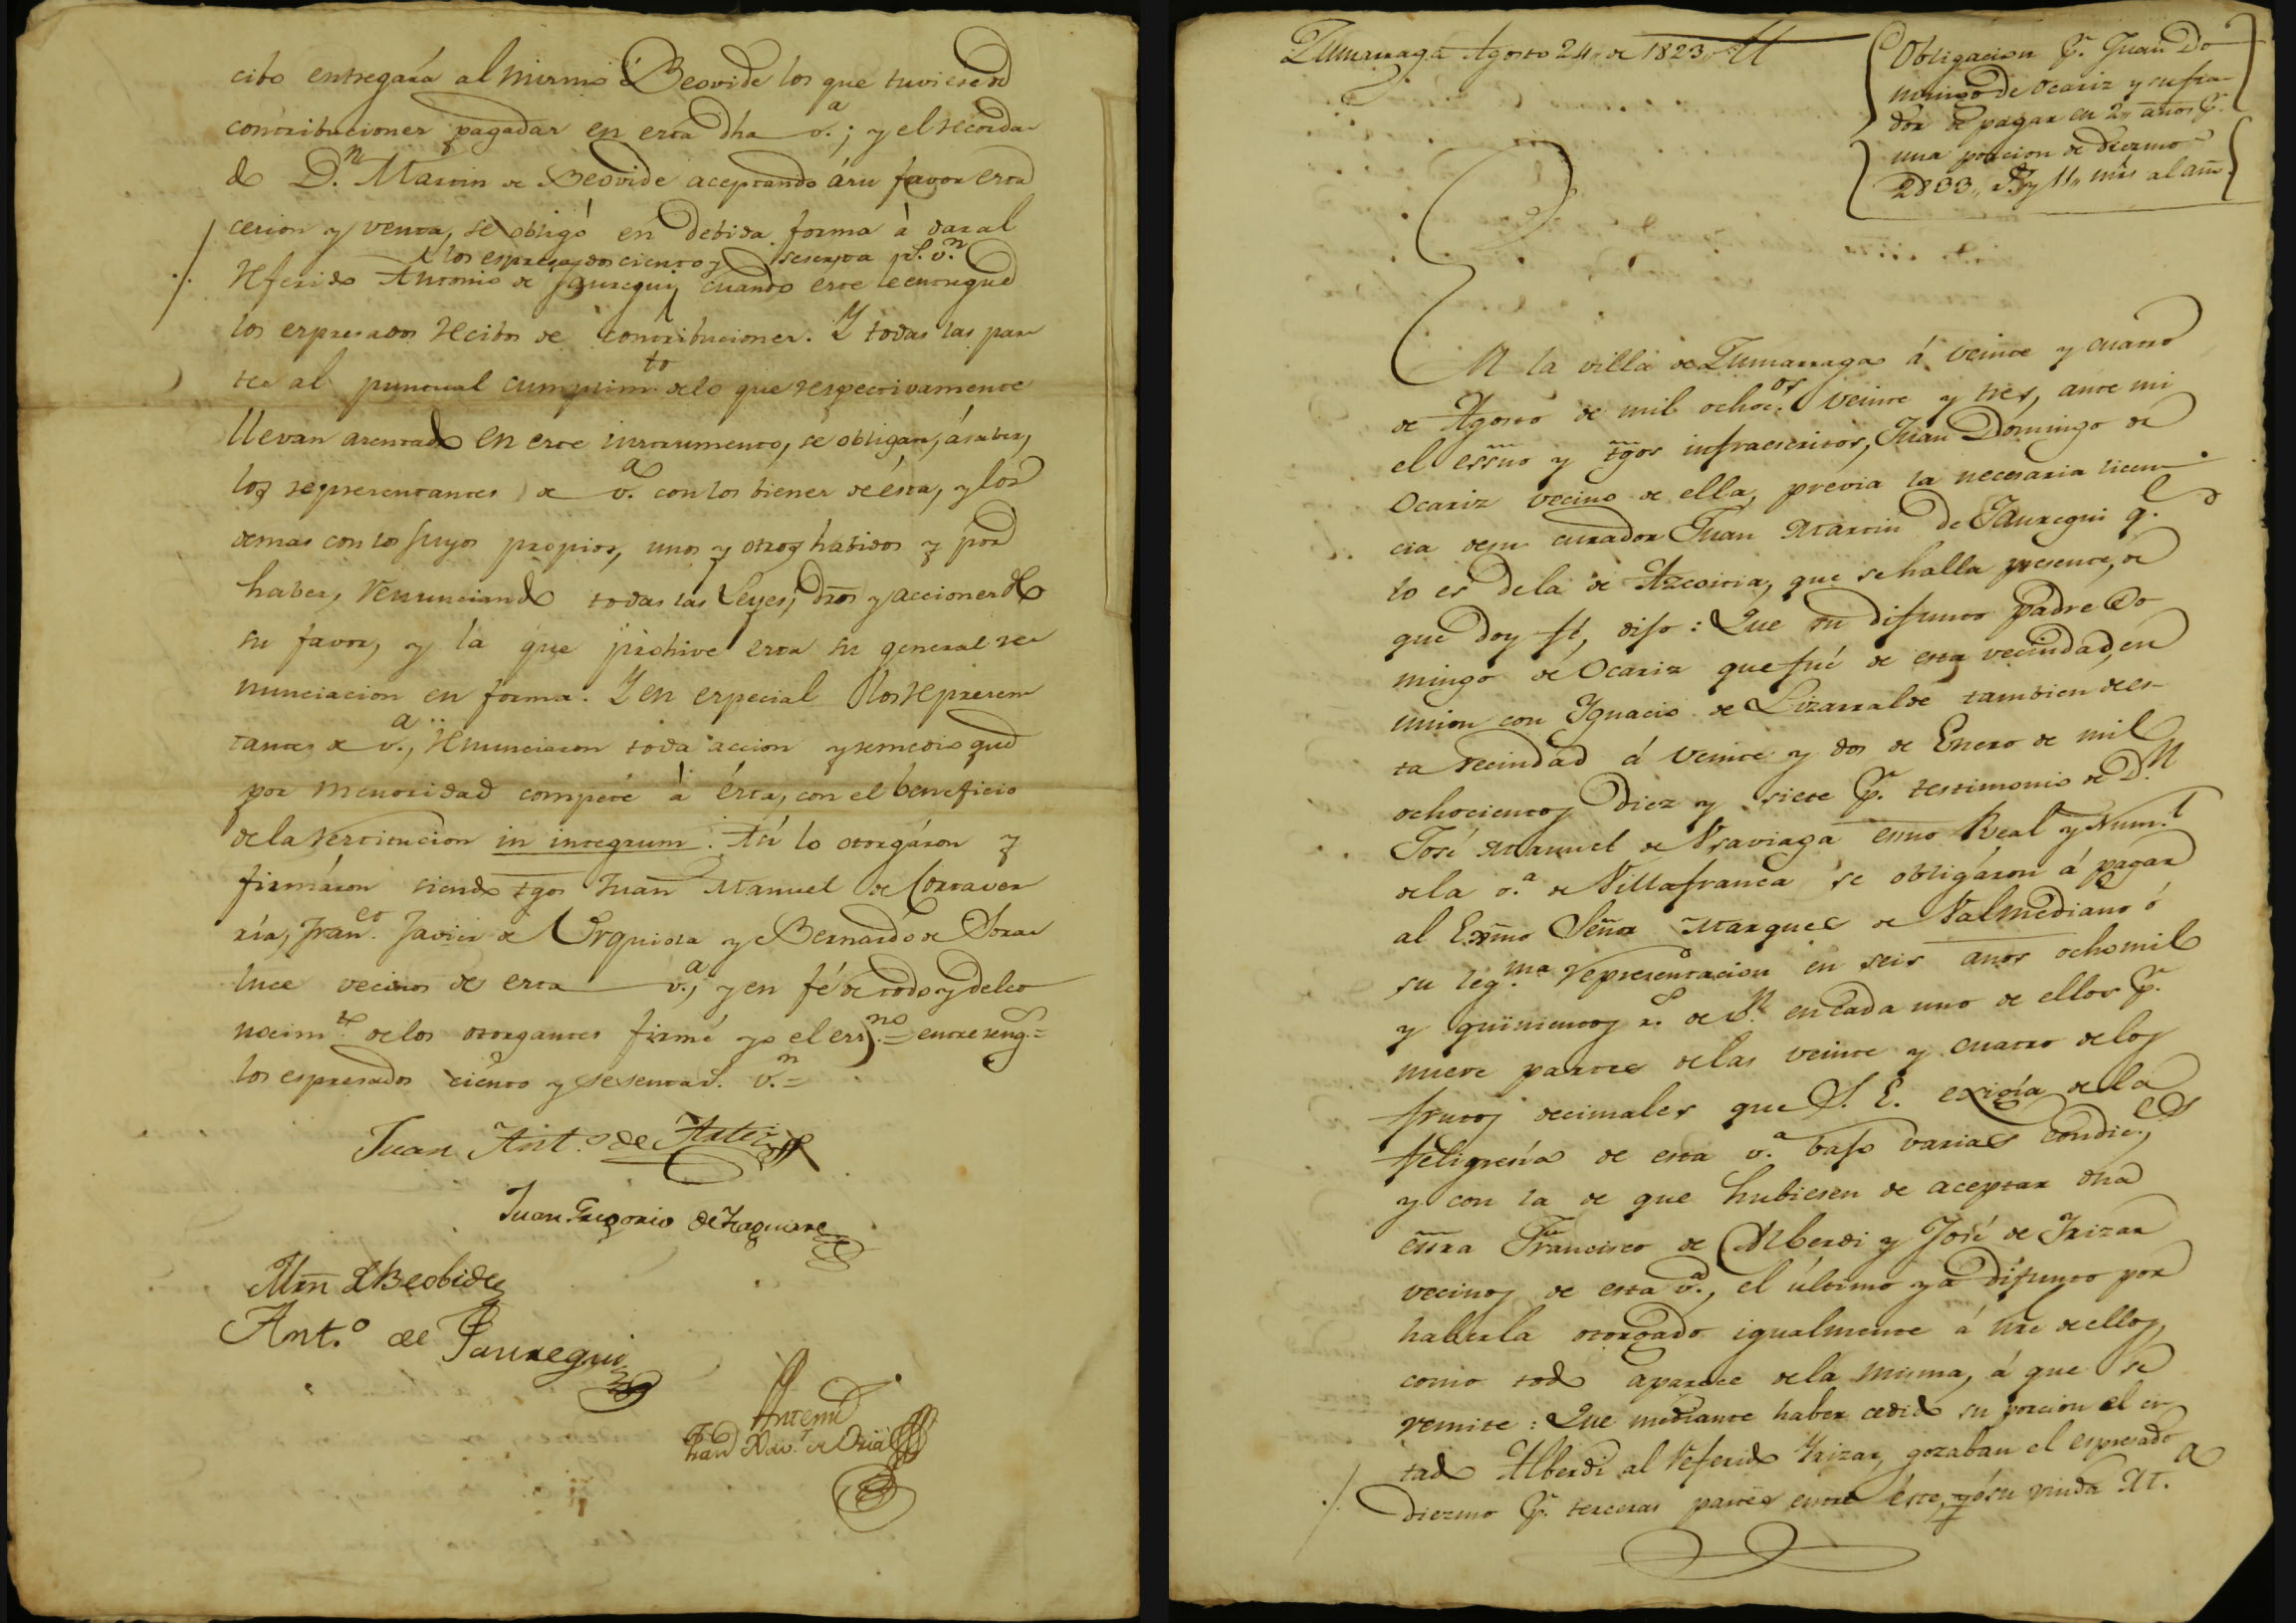 cibo entregará al mismo Beovide los que tuviese de
contribuciones pagadas en esta dha v.ª; y el recorda-
do D.n Martin de Beovide aceptando á su favor esta
cesion y venta, se obligó en debida forma á dar al
los espresados ciento y sesenta r.s v.n
referido Antonio de Jauregui, cuando este le entregue
los espresados recibos de contribuciones. Y todas las par-
tes al puntual cumplim.to de lo que respectivamente
llevan asentado en este instrumento, se obligan, á saber,
los representantes de v.ª con los bienes de ésta, y los
demas con los suyos propios, unos y otros habidos y por
haber, renunciando todas las Leyes, dros y acciones de
su favor, y la que prohive esta su general re-
nunciacion en forma. Y en especial los represen-
tantes de v.ª, renunciaron toda accion y remedio que
por menoridad compete á ésta, con el beneficio
de la restitucion in integrum. Así lo otorgáron y
firmáron siendo tgos Juan Manuel de
ría, Fran.co Javier de Urquiola y Bernardo de Sora-
luce vecinos de esta v.ª, y en fé de todo y del co-
nocim.to de los otorgantes firmé yo el ess.no = entre reng.s =
los espresados ciento y sesenta r.s v.n =
Juan Ant.o de
Juan Gregorio de Izaguirre
Mrn de Beobide
Ant.o de Jauregui
Antemi
Juan Xav.r de Oria
Zumarraga Agosto 24,, de 1823,,
Obligacion p.r Juan Do-
mingo de Ocariz y su fia-
dor de pagar en 2,, años p.r
una porcion de diezmo
2833,, r.s y 11,, mrs al año
En la villa de Zumarraga á veinte y cuatro
de Agosto de mil ochoc.os veinte y tres, ante mi
el essno y tgos infraescritos, Juan Domingo de
Ocariz vecino de ella, previa la necesaria licen-
cia de su curador Juan Martin de Jauregui q.e
lo es de la de Azcoitia, que se halla presente, de
que doy fé, dijo: Que su difunto padre Do-
mingo de Ocariz que fué de esta vecindad, en
union con Ignacio de Lizarralde tambien de es-
ta vecindad á veinte y dos de Enero de mil
ochocientos diez y siete p.r testimonio de D.n
José Manuel de Usaviaga esno Real y Num.l
de la v.ª de Villafranca se obligáron á pagar
al Exmo Señor Marques de Valmediano ó
su leg.ma representacion en seis años ocho mil
y quinientos r.s de v.n en cada uno de ellos p.r
nueve partes de las veinte y cuatro de los
frutos decimales que S. E. exigía de la
feligresía de esta v.ª bajo varias condic.es,
y con la de que hubiesen de aceptar dha
essra Francisco de Alberdi y José de Irizar
vecinos de esta v.ª, el último ya difunto por
haberla otorgado igualmente á una de ellos,
como todo aparece de la misma, á que se
remite: Que mediante haber cedido su porcion el ci-
tado Alberdi al referido Irizar, gozaban el espresado
diezmo p.r terceras partes entre éste, y su viuda